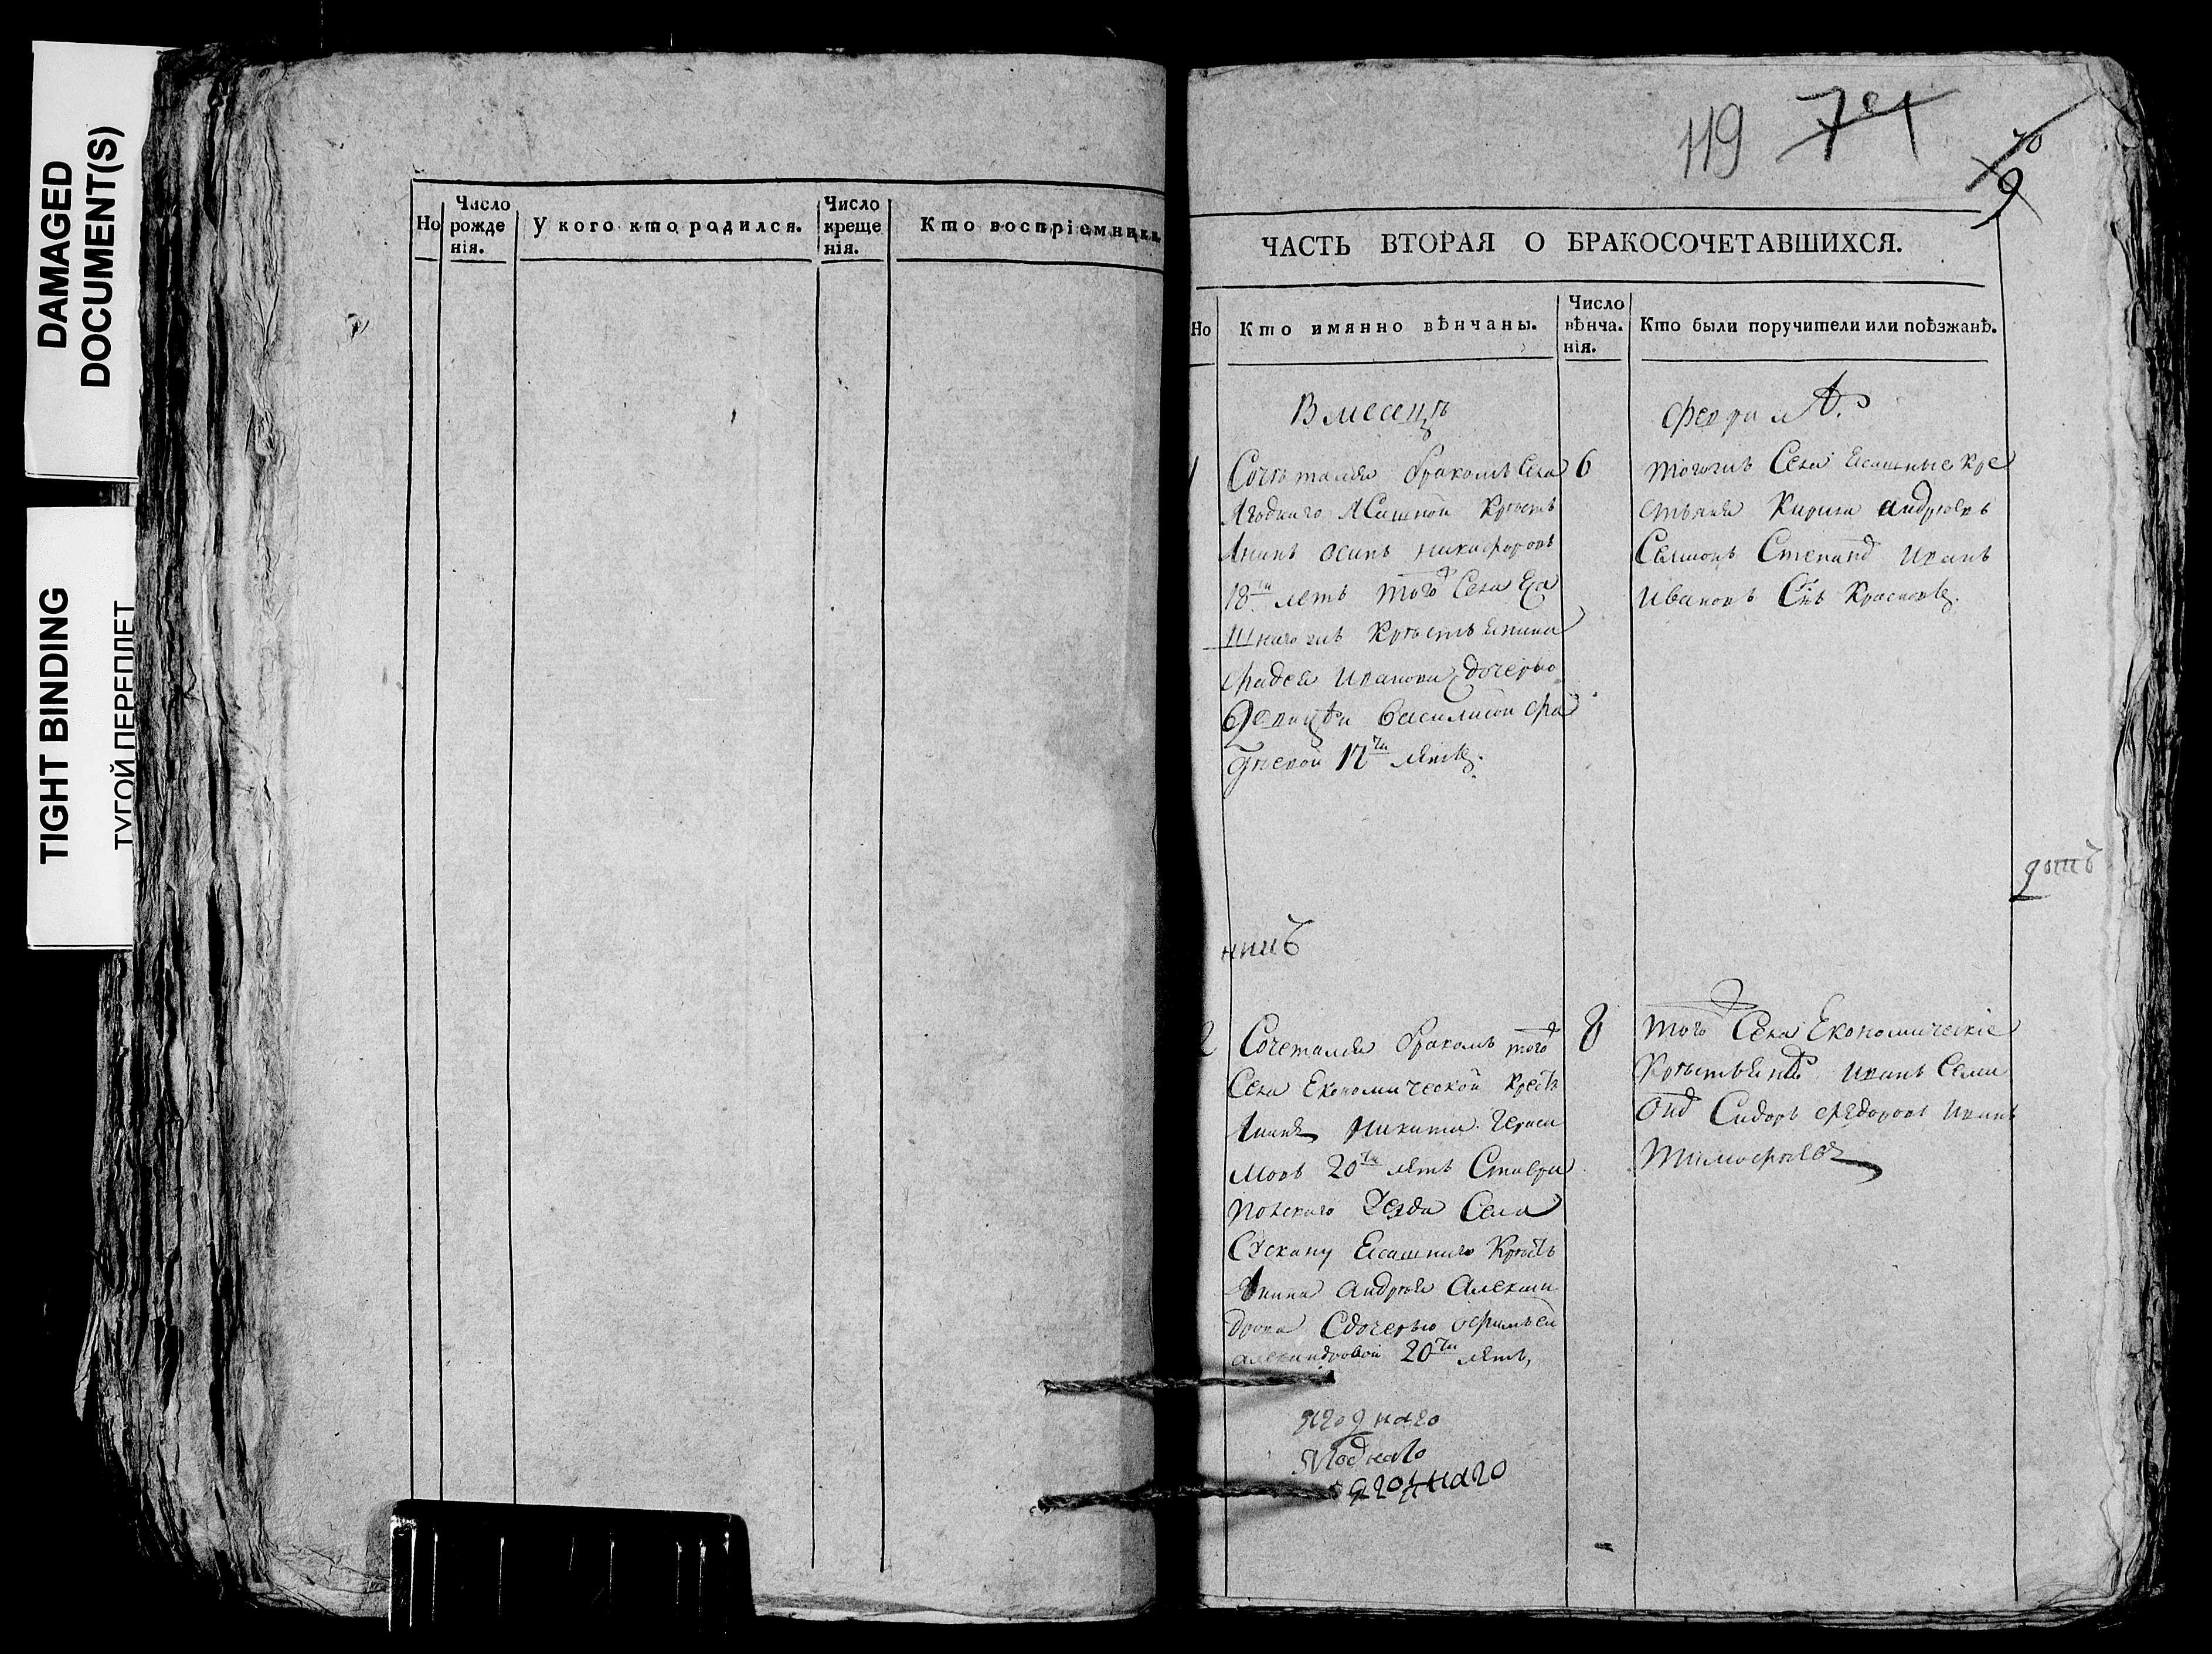 DAMAGED
DOCUMENT(S)
TIGHT BINDING
ТУГОЙ ПЕРЕПЛЕТ
Но
Число
рожде
нія.
У кого кто родился.
Число
креще
нія.
Кто воспріемники
119
70
9
ЧАСТЬ ВТОРАЯ О БРАКОСОЧЕТАВШИХСЯ.
Но
Кто имянно вѣнчаны.
Число
вѣнча.
нія.
Кто были поручители или поѣзжанѣ.
В месецѣ
феврилѣ
1
Сочетался бракомъ Села
Ягоднаго Ясашной Крѣсть
янинъ Осипъ Никифоровъ
18ти летъ того Села Еса
шнагожъ Крѣстьянина
Фадея Иванова дочерью
девицѣи Василисои Фа
дѣевой 17ти лѣтъ.
6
тогожъ Села Есашные кре
стьяня Кирила Андрѣевъ
Семионъ Степанд Иванъ
Ивановъ Снъ Красновъ.
2
Сочетался бракомъ того
Села Економической Крестья
янинъ Никита Гераси
мовъ 20ти лѣтъ Ставро
польскаго Уезда Села
Сускану Есашнаго Крѣсть
янина Андрѣя Алексан
дрова Сдочерью Офимьей
Александровой 20ти лѣтъ,
8
того Села Економическіе
Крѣстьянѣ Иванъ Семи
онд Сидоръ Федоровъ Иванъ
Тимофѣевъ
ягоднаго
Ягоднаго
ягоднаго